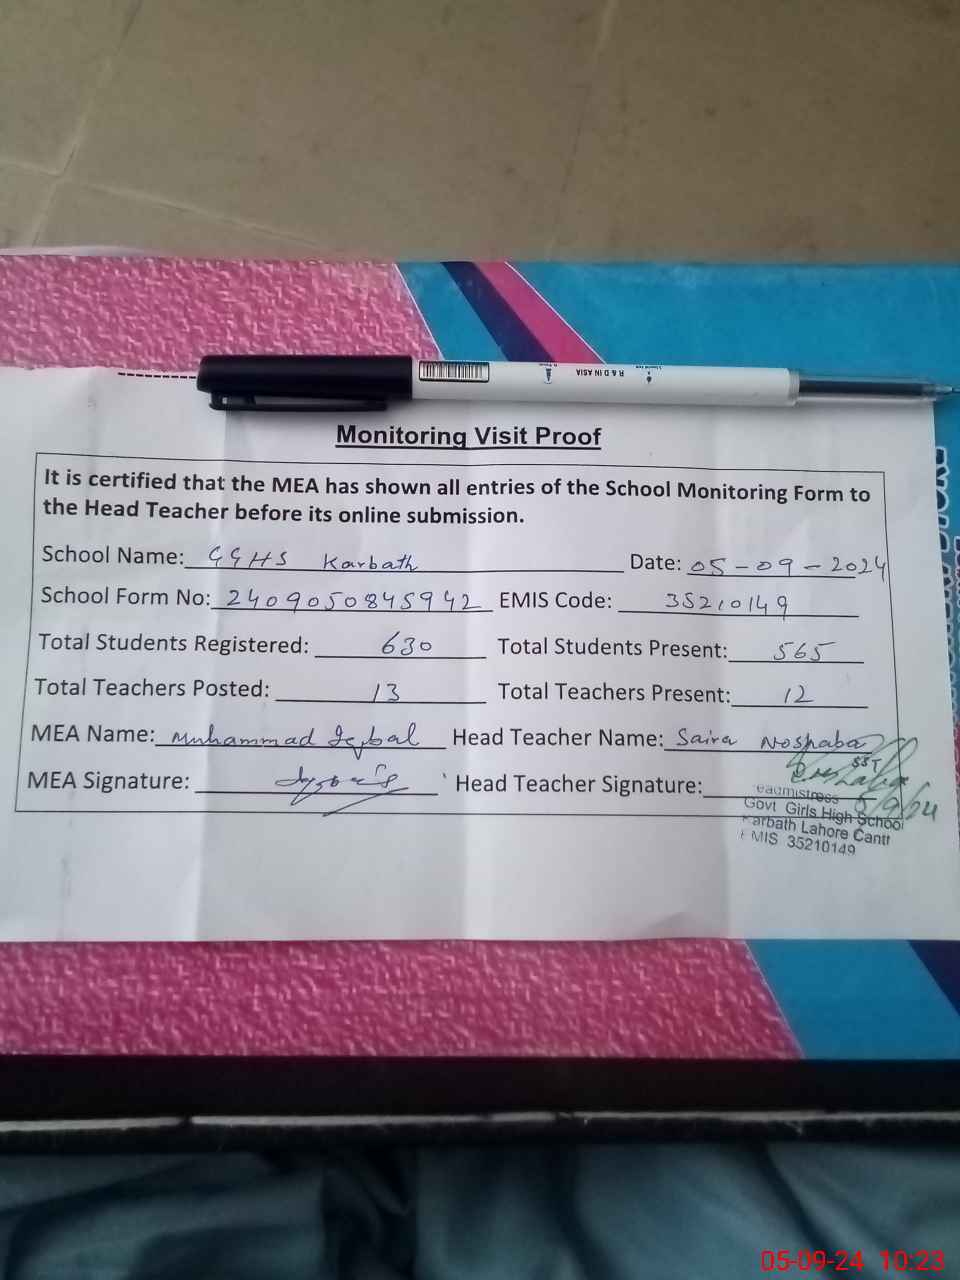 R & D IN ASIA
Monitoring Visit Proof
It is certified that the MEA has shown all entries of the School Monitoring Form to
the Head Teacher before its online submission.
School Name: GGHS Karbath Date: 05-09-2024
School Form No: 2409050845942 EMIS Code: 35210149
Total Students Registered: 630 Total Students Present: 565
Total Teachers Posted: 13 Total Teachers Present: 12
MEA Name: Muhammad Iqbal Head Teacher Name: Saira Noshaba
SST
MEA Signature: Head Teacher Signature:
5/9/24
eadmistress
Govt Girls High School
Karbath Lahore Cantt
EMIS 35210149
05-09-24 10:23